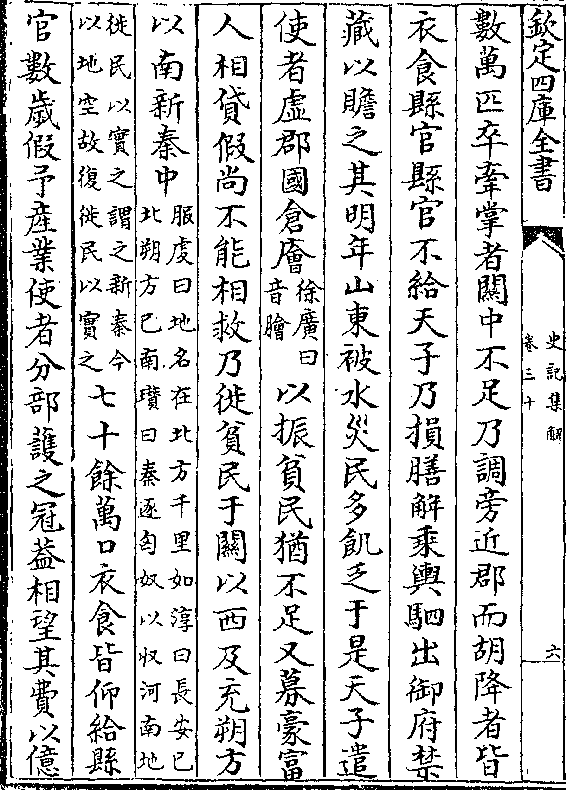 欽定四庫全書
史記集解
卷三十
六
數萬匹卒牽掌者關中不足乃調旁近郡而胡降者皆
衣食縣官縣官不給天子乃損膳解乘輿駟出御府禁
藏以贍之其明年山東被水災民多飢乏于是天子遣
使者虛郡國倉廥
徐廣曰
音膾
以振貧民猶不足又募豪富
人相貸假尚不能相救乃徙貧民于關以西及充朔方
以南新秦中
服虔曰地名在北方千里如淳曰長安已
北朔方已南瓚曰秦逐匈奴以收河南地
徙民以實之謂之新秦今
以地空故復徙民以實之
七十餘萬口衣食皆仰給縣
官數歲假予產業使者分部護之冠葢相望其費以億